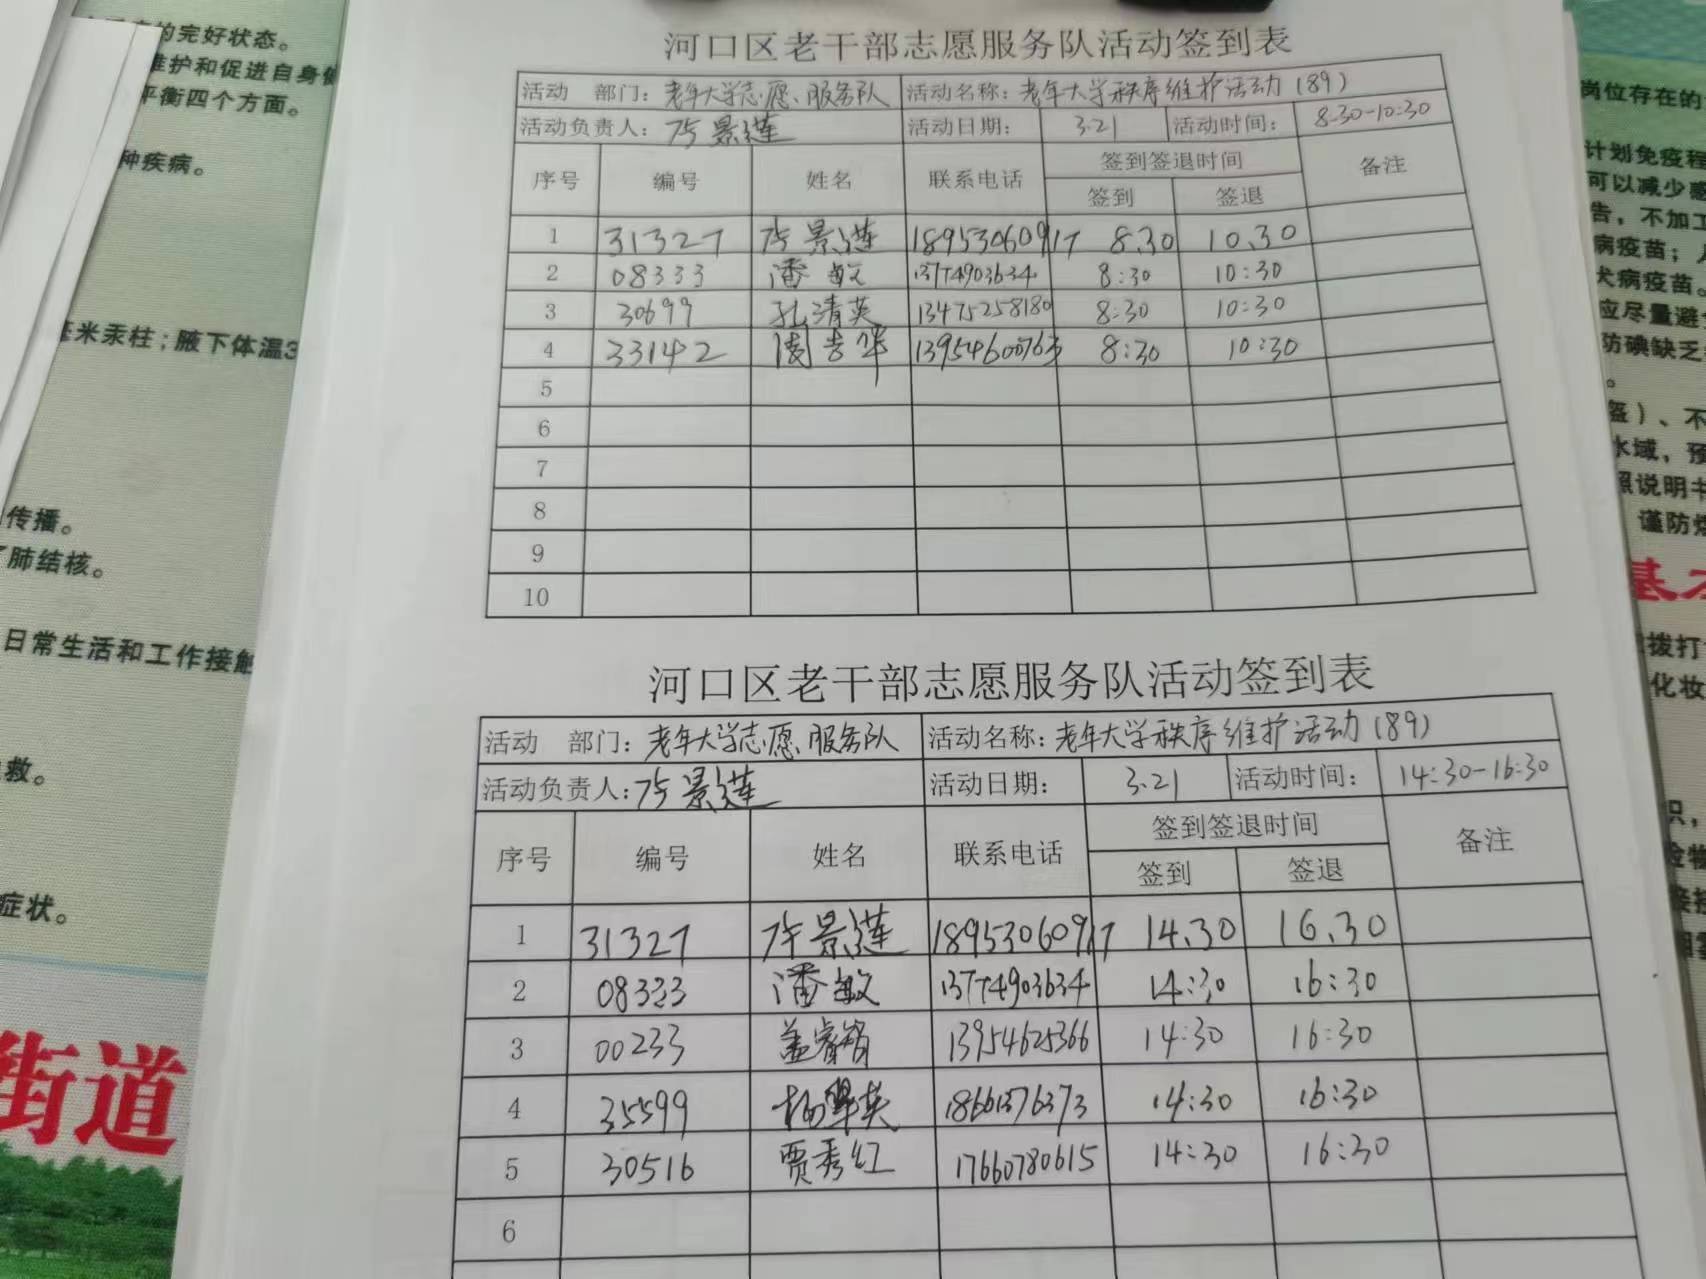 的完好状态。
维护和促进自身健
平衡四个方面。
种疾病。
毫米汞柱；腋下体温3
传播。
了肺结核。
日常生活和工作接触
救。
症状。
街道
河口区老干部志愿服务队活动签到表
活动 部门：老年大学志愿服务队 活动名称：老年大学秩序维护活动（89）
活动负责人：许景莲 活动日期： 3.21 活动时间： 8:30-10:30
序号 编号 姓名 联系电话 签到签退时间 备注
签到 签退
1 31327 许景莲 18953060917 8.30 10.30
2 08333 潘敏 13774903634 8:30 10:30
3 30699 孔清英 13475258180 8:30 10:30
4 33142 周吉华 8:30 10:30
5
6
7
8
9
10
河口区老干部志愿服务队活动签到表
活动 部门：老年大学志愿服务队 活动名称：老年大学秩序维护活动（89）
活动负责人：许景莲 活动日期： 3.21 活动时间： 14:30-16:30
序号 编号 姓名 联系电话 签到签退时间 备注
签到 签退
1 31327 许景莲 18953060917 14.30 16.30
2 08333 潘敏 13774903634 14:30 16:30
3 00233 盖睿智 13954625366 14:30 16:30
4 35599 杨翠英 18661376373 14:30 16:30
5 30516 贾秀红 17660780615 14:30 16:30
6
岗位存在的
计划免疫程
可以减少感
告，不加工
病疫苗；
犬病疫苗。
应尽量避
防碘缺乏
。
盔）、不
水域，预
照说明书
谨防煤
基本
拨打
化妆
识，
检物
接